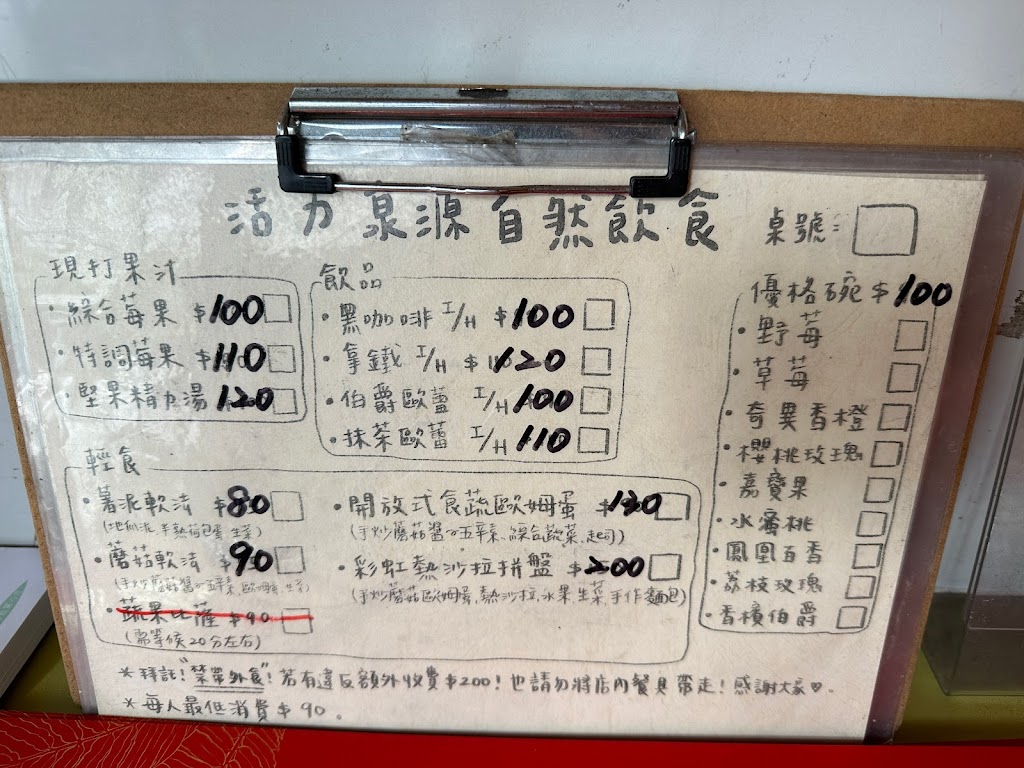 活力泉源自然飲食
桌號：
現打果汁
・綜合莓果 $100
・特調莓果 $110
・堅果精力湯 120
飲品
・黑咖啡 I/H $100
・拿鐵 I/H $120
・伯爵歐蕾 I/H 100
・抹茶歐蕾 I/H 110
優格碗 $100
・野莓
・草莓
・奇異香橙
・櫻桃玫瑰
・嘉寶果
・水蜜桃
・鳳凰百香
・荔枝玫瑰
・香檳伯爵
輕食
・薯泥軟法 $80
(地瓜泥、半熟荷包蛋、生菜)
・蘑菇軟法 $90
(手炒蘑菇醬、五辛素、歐姆蛋、生菜)
・蔬果比薩 $90
(需等候20分左右)
・開放式食蔬歐姆蛋 $180
(手炒蘑菇醬、五辛素、綜合蔬菜、起司)
・彩虹熱沙拉拼盤 $200
(手炒蘑菇歐姆蛋、熱沙拉、水果、生菜、手作麵包)
*拜託!"禁帶外食"!若有違反額外收費$200!也請勿將店內餐具帶走!感謝大家♡.
*每人最低消費$90.